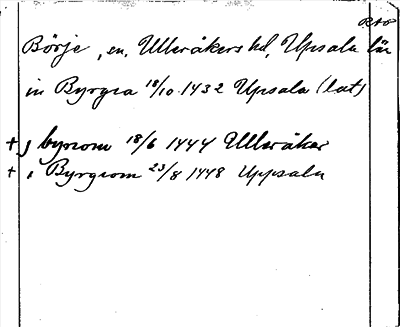 RAO
Börje, sn, Ulleråkers hd, Upsala län
in Byrgia 18/10 1432 Upsala (lat)
+ j byriom 18/6 1444 Ulleråker
+ i Byrgiom 23/8 1448 Uppsala